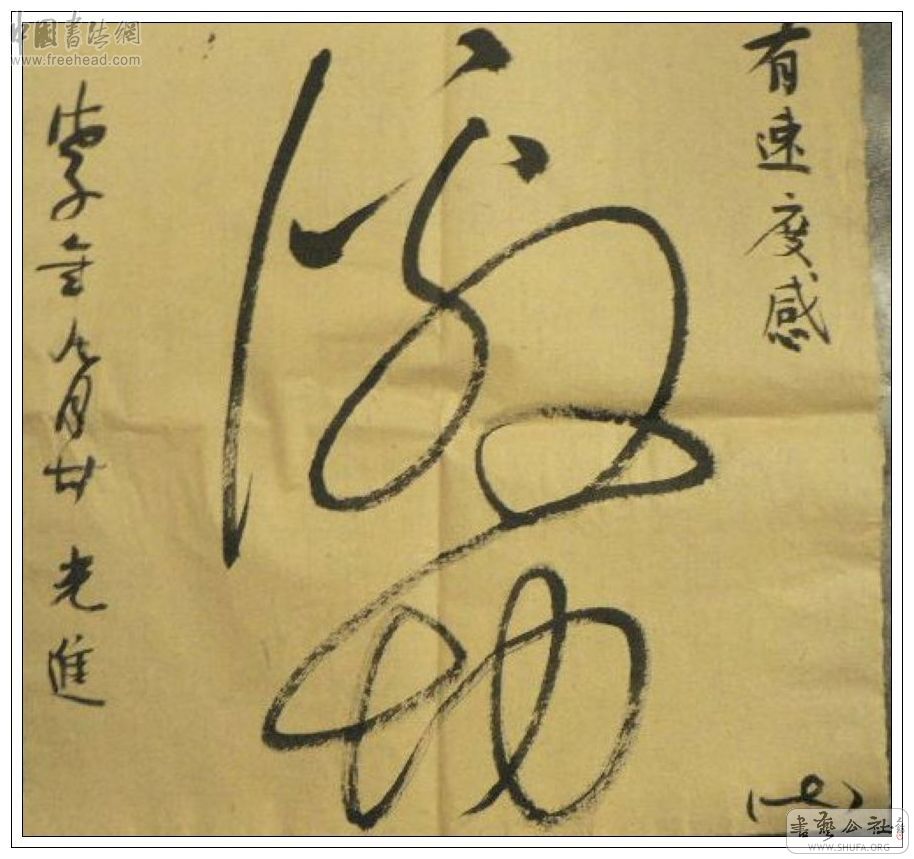 中国書法網
www.freehead.com
有速度感
激動
子年九月廿 光進
書藝公社
WWW.SHUFA.ORG